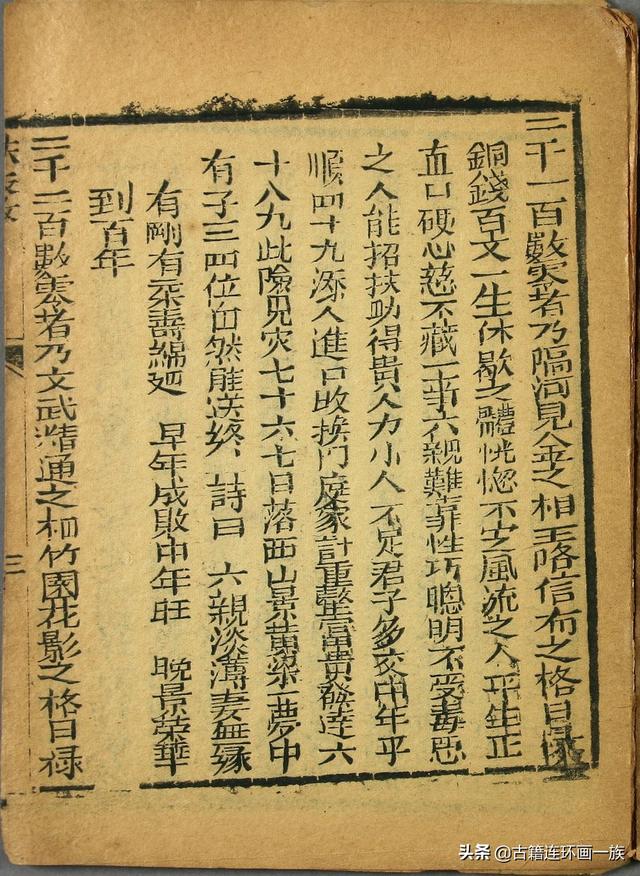 三千一百數零者乃隔河見金之相王咯信布之格日
銅錢百文一生休歇之體恍惚不定風流之人平生正
直口硬心慈不藏一事六親難靠性巧聰明不受毒惡
之人能招扶助得貴人力小人不足君子多交中年平
順四十九添人進口改換門庭家計重整富貴發達六
十八九此險見灾七十六七日落西山景黄粱一夢中
有子三四位自然能送終 詩曰 六親淡薄妻無緣
有剛有柔壽綿延 早年成敗中年旺 晚景榮華
到百年
三千二百數零者乃文武精通之相竹園花影之格日禄
三
头条 @古籍连环画一族